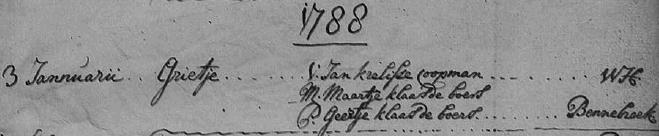 1788
3 Jannuarii .. Grietje ........ V: Jan krelisse coopman ........ WH
M. Maartje klaas de boers
P. Geertje klaas de boers ........ Bennebroek